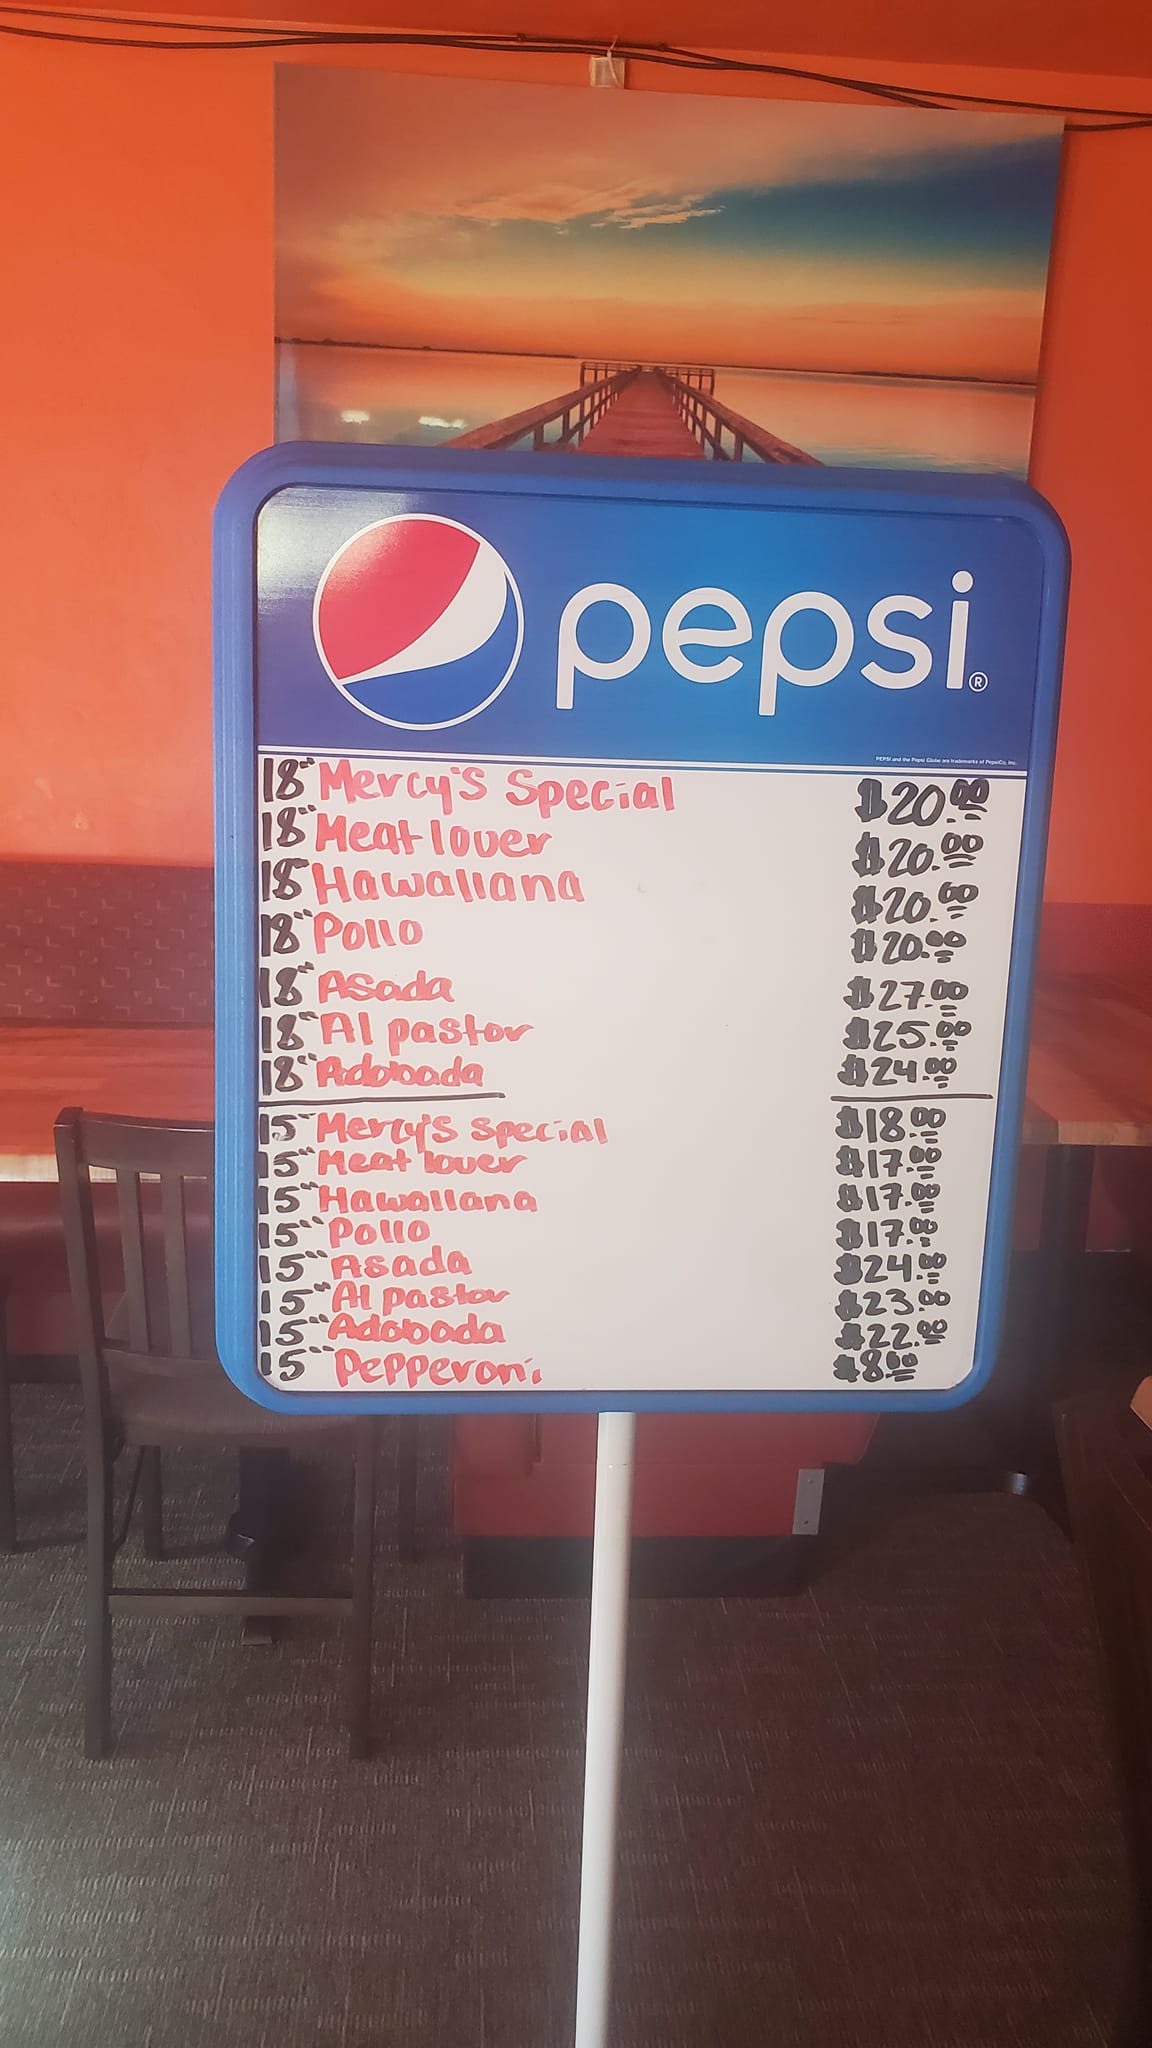 pepsi®
PEPSI and the Pepsi Globe are trademarks of PepsiCo, Inc.
18" Mercy's Special $20.00
18" Meat lover $20.00
18" Hawallana $20.00
18" Pollo $20.00
18" Asada $27.00
18" Al pastor $25.00
18" Adobada $24.00
15" Mercy's special $18.00
15" Meat lover $17.00
15" Hawallana $17.00
15" Pollo $17.00
15" Asada $24.00
15" Al pastor $23.00
15" Adobada $22.00
15" Pepperoni $8.00